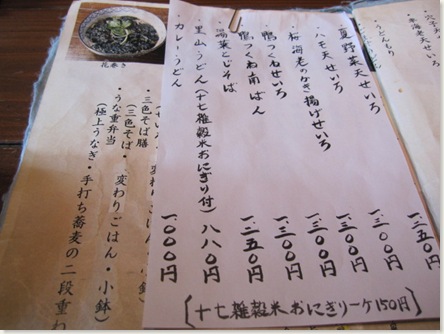 うどんもり
夏野菜天せいろ 一、二五〇円
・ハモ天せいろ 一、二〇〇円
・桜海老のかき揚げせいろ 一、三〇〇円
・鴨つくねせいろ 一、三〇〇円
・鴨つくね南ばん 一、三〇〇円
・湯葉とじそば 一、二五〇円
・里山うどん(十七雑穀米おにぎり付) 八八〇円
・カレーうどん 一、〇〇〇円
[十七雑穀米おにぎり一ケ150円]
花巻き
変わりごはん・小鉢)
・三色そば膳
(三色そば・変わりごはん・小鉢)
・うな重弁当
(極上うなぎ・手打ち蕎麦の二段重ね